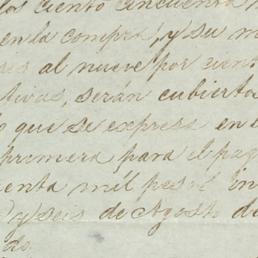 los ciento cincuenta m
en la compra, y su m
es al nueve por cient
tivas, serán cubierto
lo que se expresa en e
primera para el pag
enta mil pesos in
y seis de Agosto de
do.